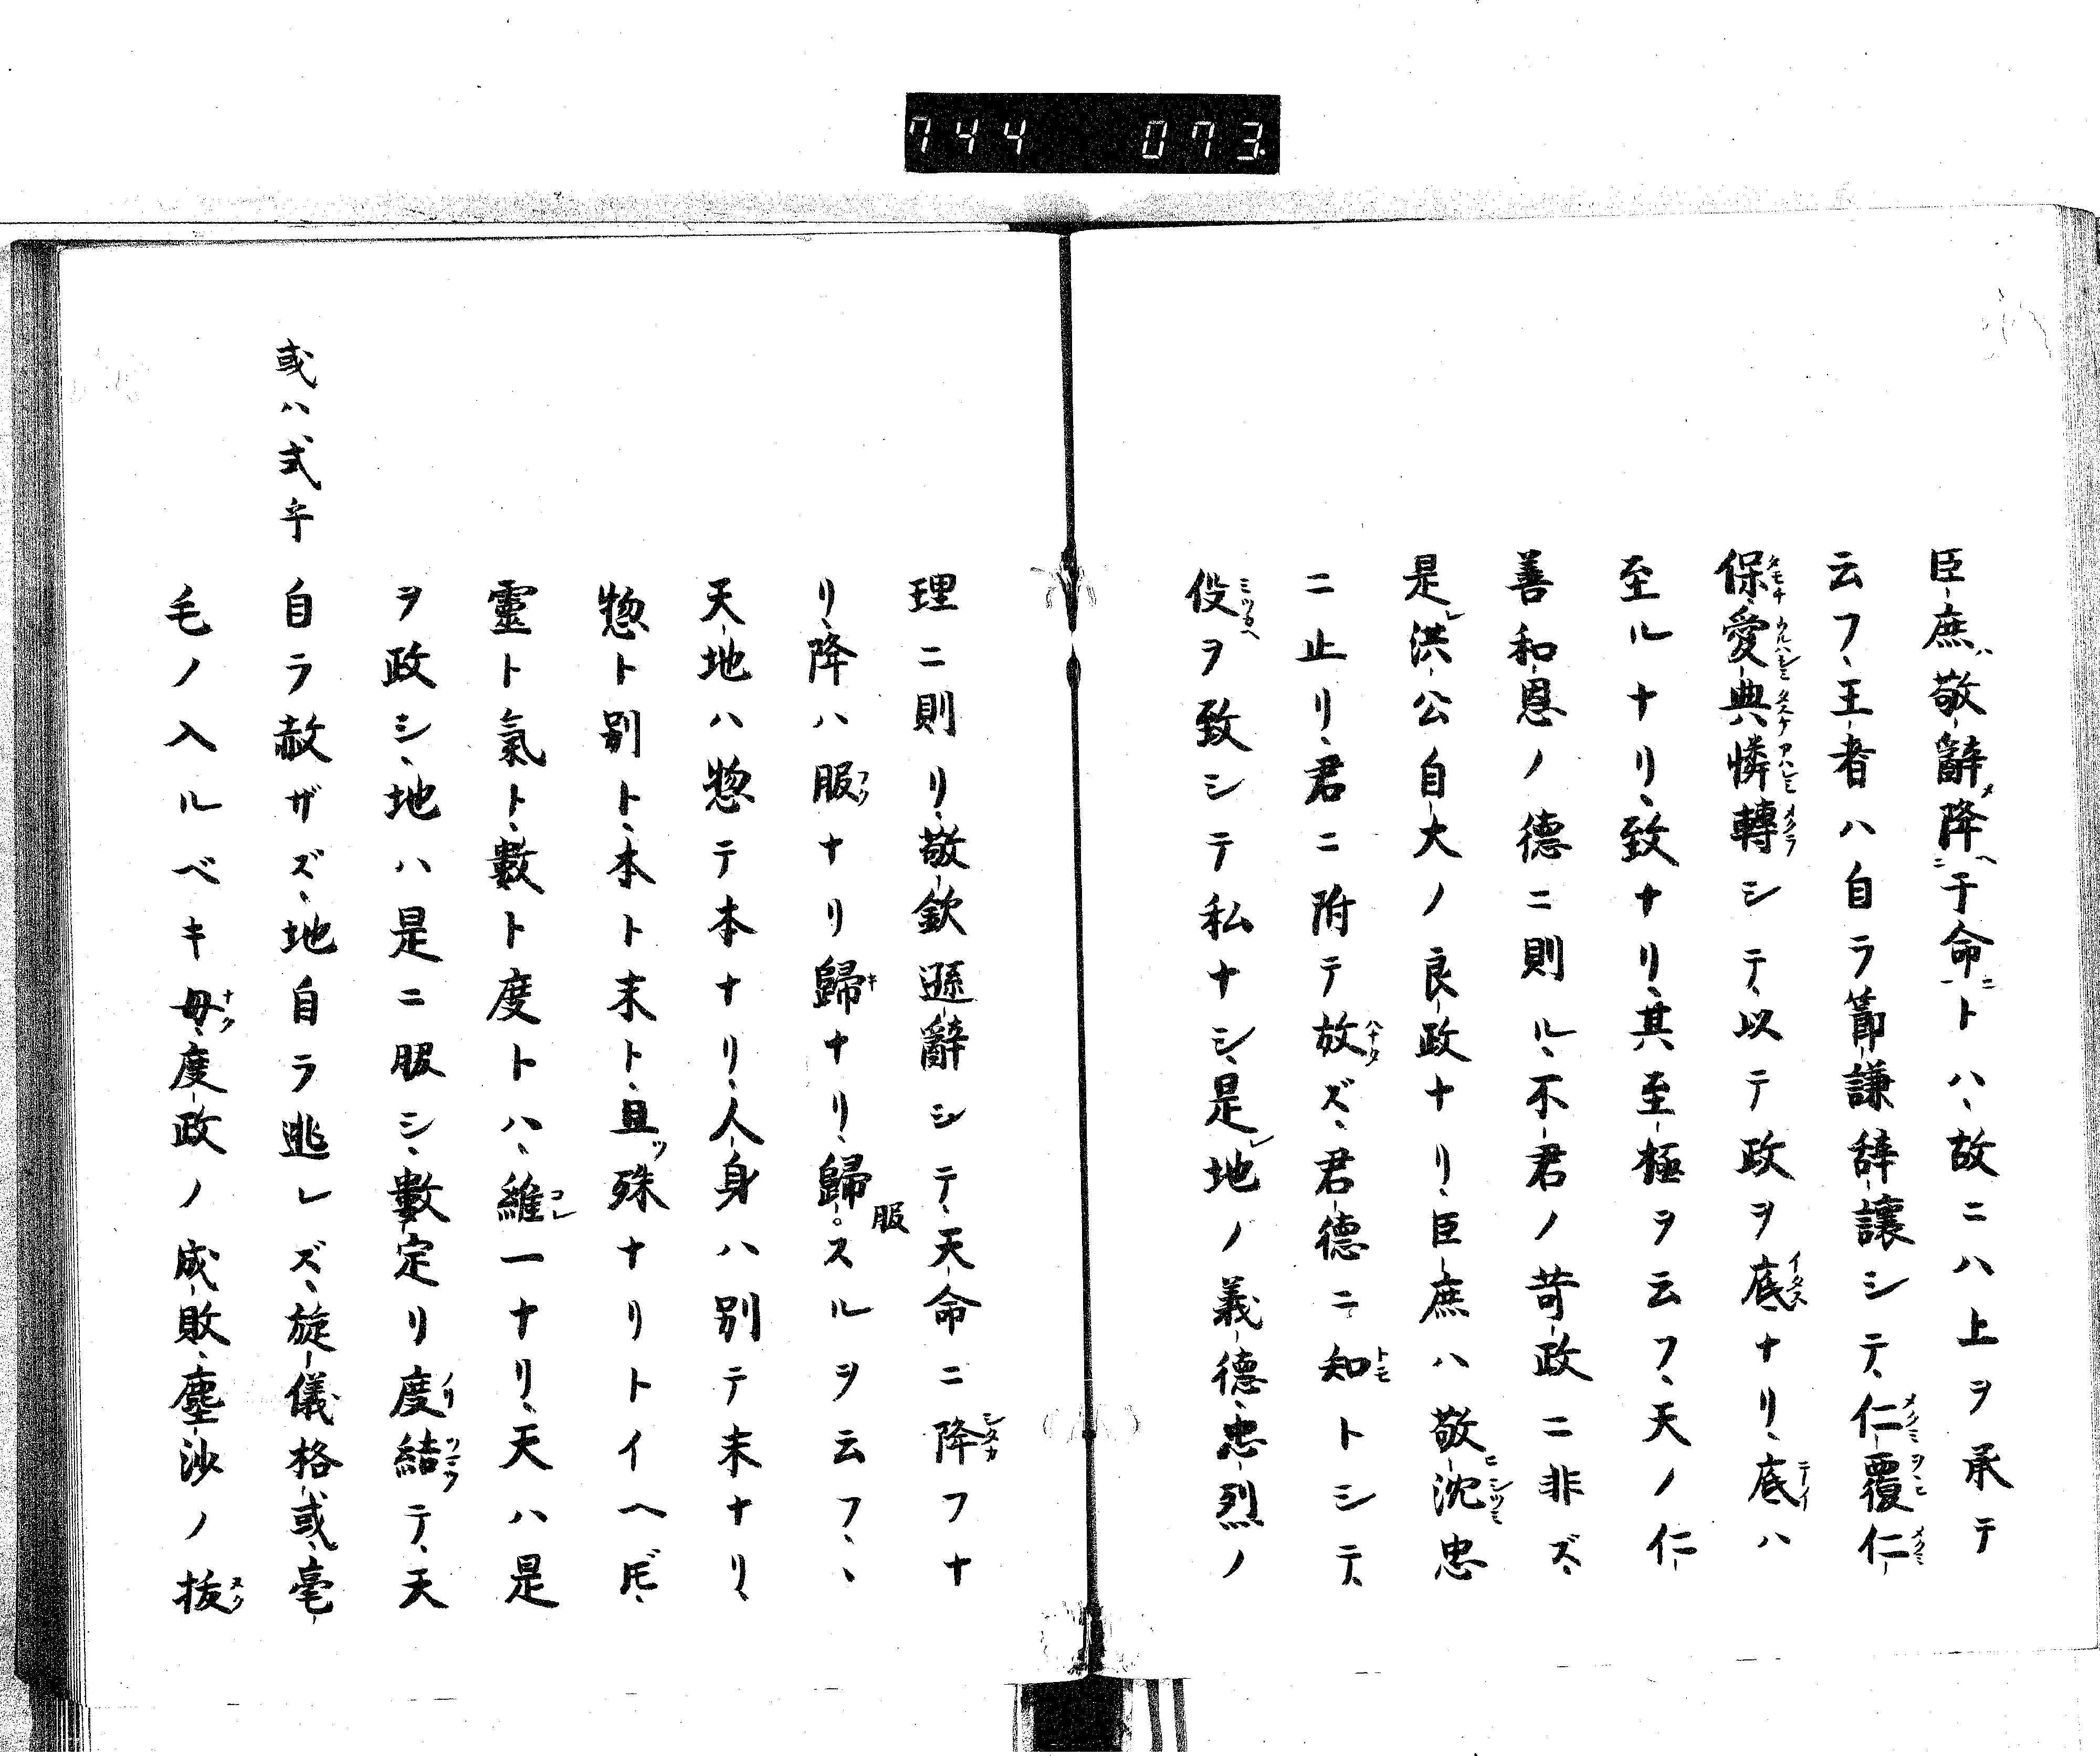 744 073
臣庶ハ敬辭降于命トハ、故ニハ上ヲ承テ
云フ、王者ハ自ラ節謙辞讓シテ、仁覆仁
保愛典憐轉シテ、以テ政ヲ底ナリ、底ハ
至ルナリ、致ナリ、其至極ヲ云フ、天ノ仁
善和恩ノ德ニ則ル、不君ノ苛政ニ非ズ、
是レ洪公自大ノ良政ナリ、臣庶ハ敬沈忠
ニ止リ、君ニ附テ放ズ、君德ニ知トシテ、
役ヲ致シテ私ナシ、是レ地ノ義德、忠烈ノ
理ニ則リ、敬欽遜辭シテ、天命ニ降フナ
リ、降ハ服ナリ歸ナリ、歸服スルヲ云フ、、
天地ハ惣テ本ナリ、人身ハ別テ末ナリ、
惣ト別ト、本ト末ト、且ツ殊ナリトイヘ𪜈、
靈ト氣ト、數ト度トハ、維一ナリ、天ハ是
ヲ政シ、地ハ是ニ服シ、數定リ度結テ、天
或ハ、式乎
自ラ赦ザズ、地自ラ逃レズ、旋儀格或、毫
毛ノ入ルベキ毋、度政ノ成敗、塵沙ノ拔